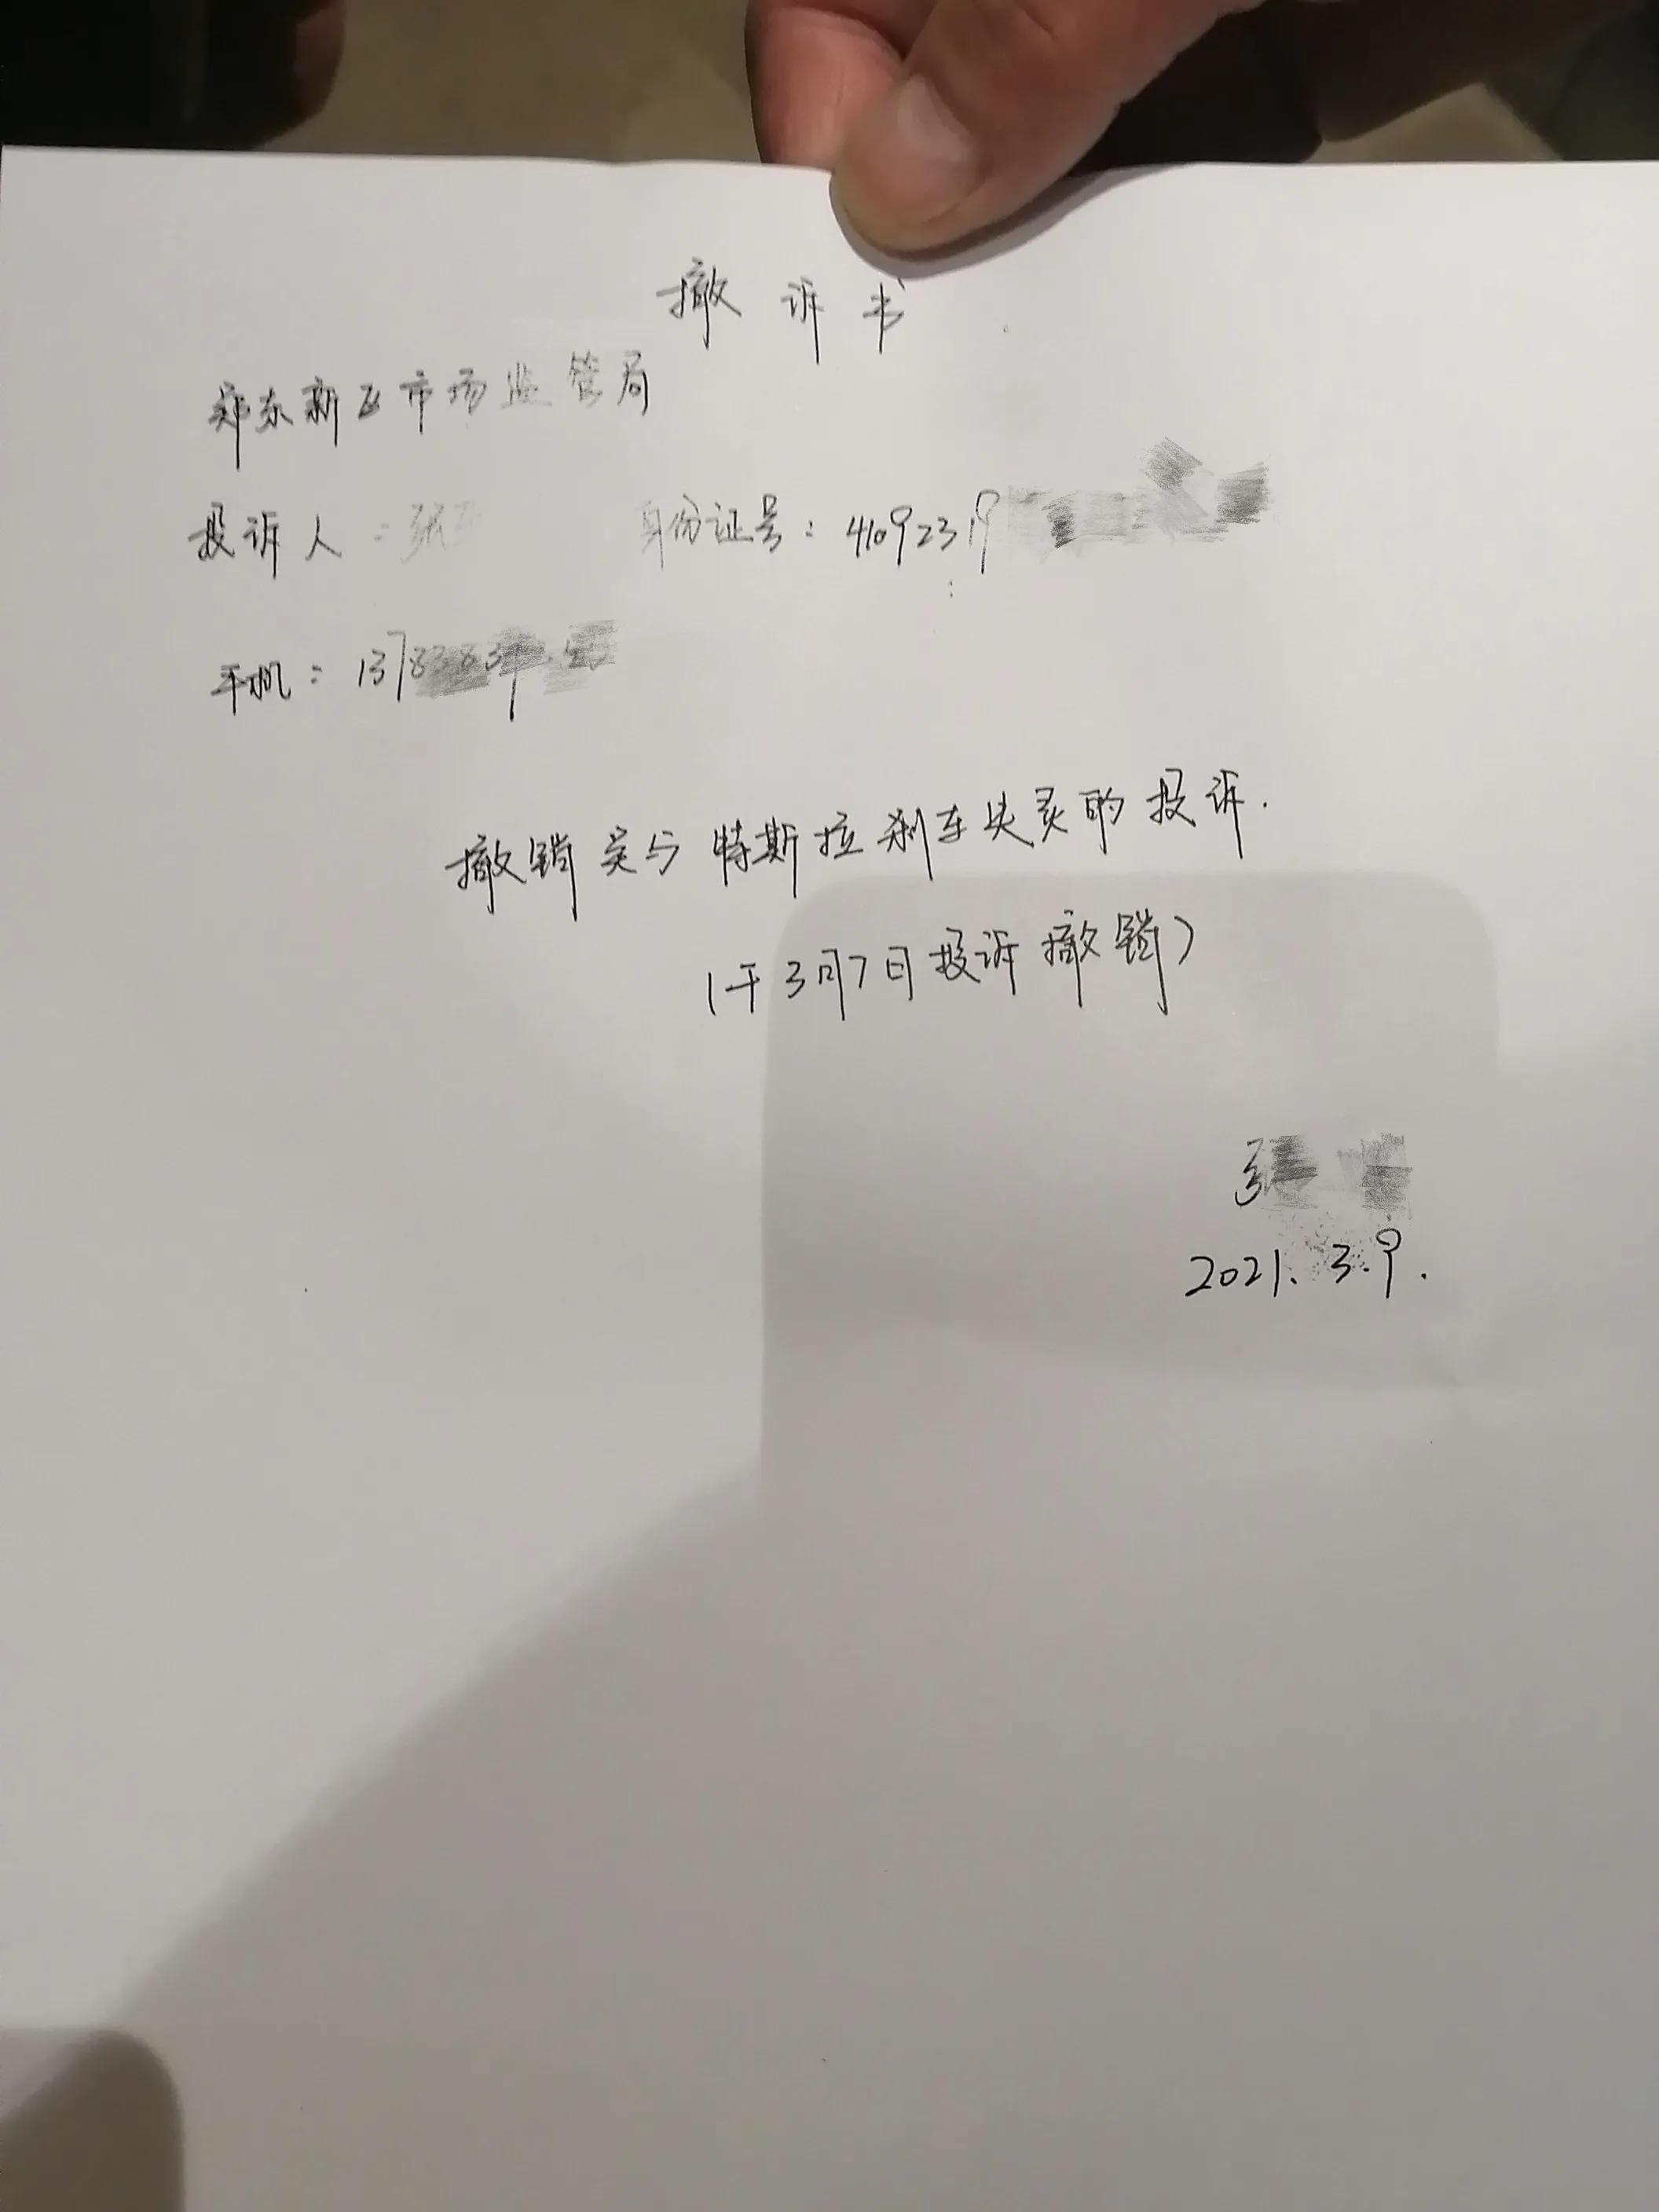 撤诉书
郑东新区市场监管局
投诉人：张 身份证号：41092319
手机：137
撤销关与特斯拉刹车失灵的投诉.
(于3月7日投诉撤销)
张
2021.3.9.